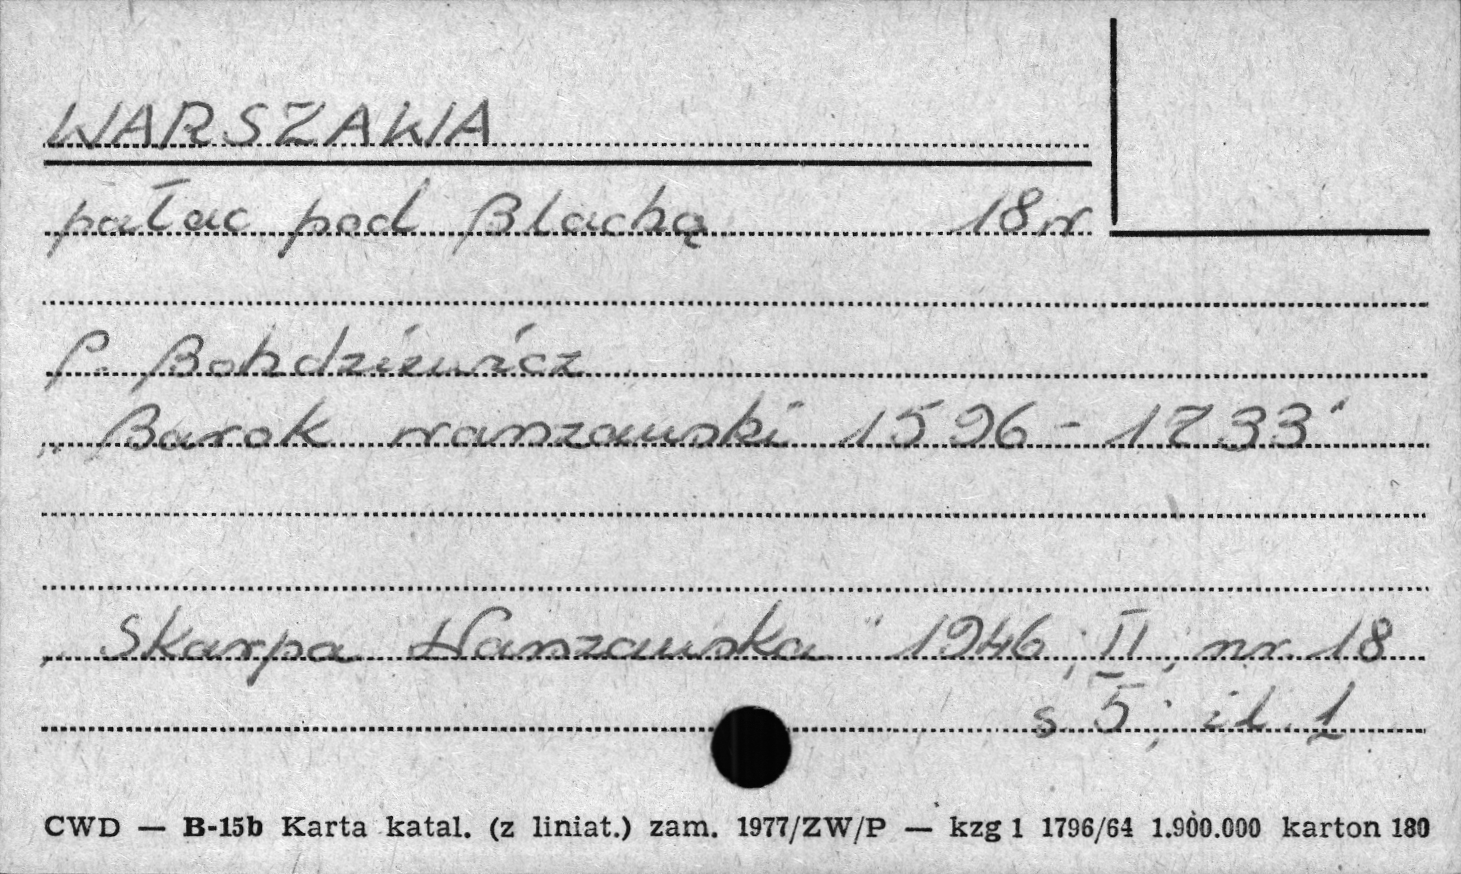 WARSZAWA
pałac pod Blachą 18 w
P. Bohdziewicz
„Barok warszawski 1596 - 1733"
„Skarpa Warszawska" 1946; II; nr. 18
s. 5; il. 1
CWD — B-15b Karta katal. (z liniat.) zam. 1977/ZW/P — kzg 1 1796/64 1.900.000 karton 180